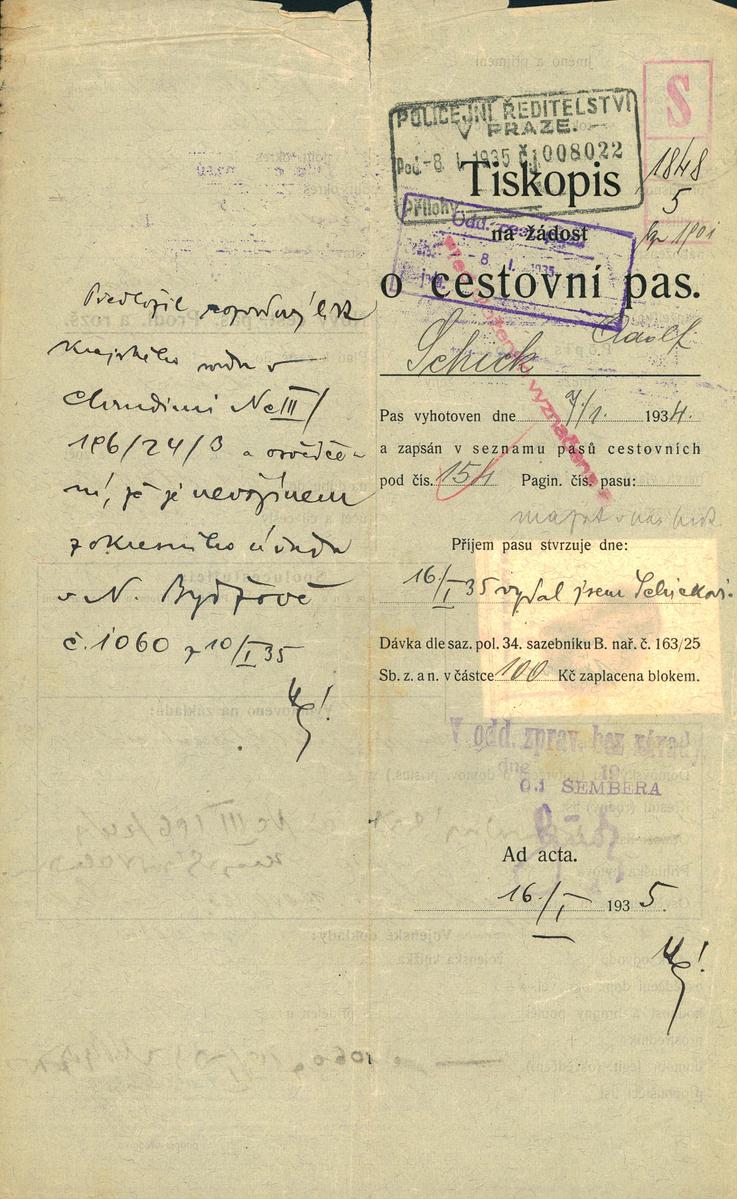 POLICEJNÍ ŘEDITELSTVÍ
V PRAZE.
Pod. -8 I. 1935 č.j. 008022
Přílohy
S
1848
5
Tiskopis
Odd.
na žádost
- 8. I. 1935
o cestovní pas.
Schick Adolf
Pas vyhotoven dne 7/1. 1934.
a zapsán v seznamu pasů cestovních
pod čís. 154 Pagin. čís. pasu:
Příjem pasu stvrzuje dne:
16/I 35 vydal jsem Schickovi.
Dávka dle saz. pol. 34. sazebníku B. nař. č. 163/25
Sb. z. a n. v částce 100 Kč zaplacena blokem.
V odd. zprav. bez závady.
dne 19
O.I ŠEMBERA
Ad acta.
16./I 1935.
Předložil rozvodový
Krajského soudu v
Chrudimi Nc III/
186/24/3 a osvědče-
ní, že je nevojínem
z okresního úřadu
v N. Bydžově
č. 1060 z 10/I 35